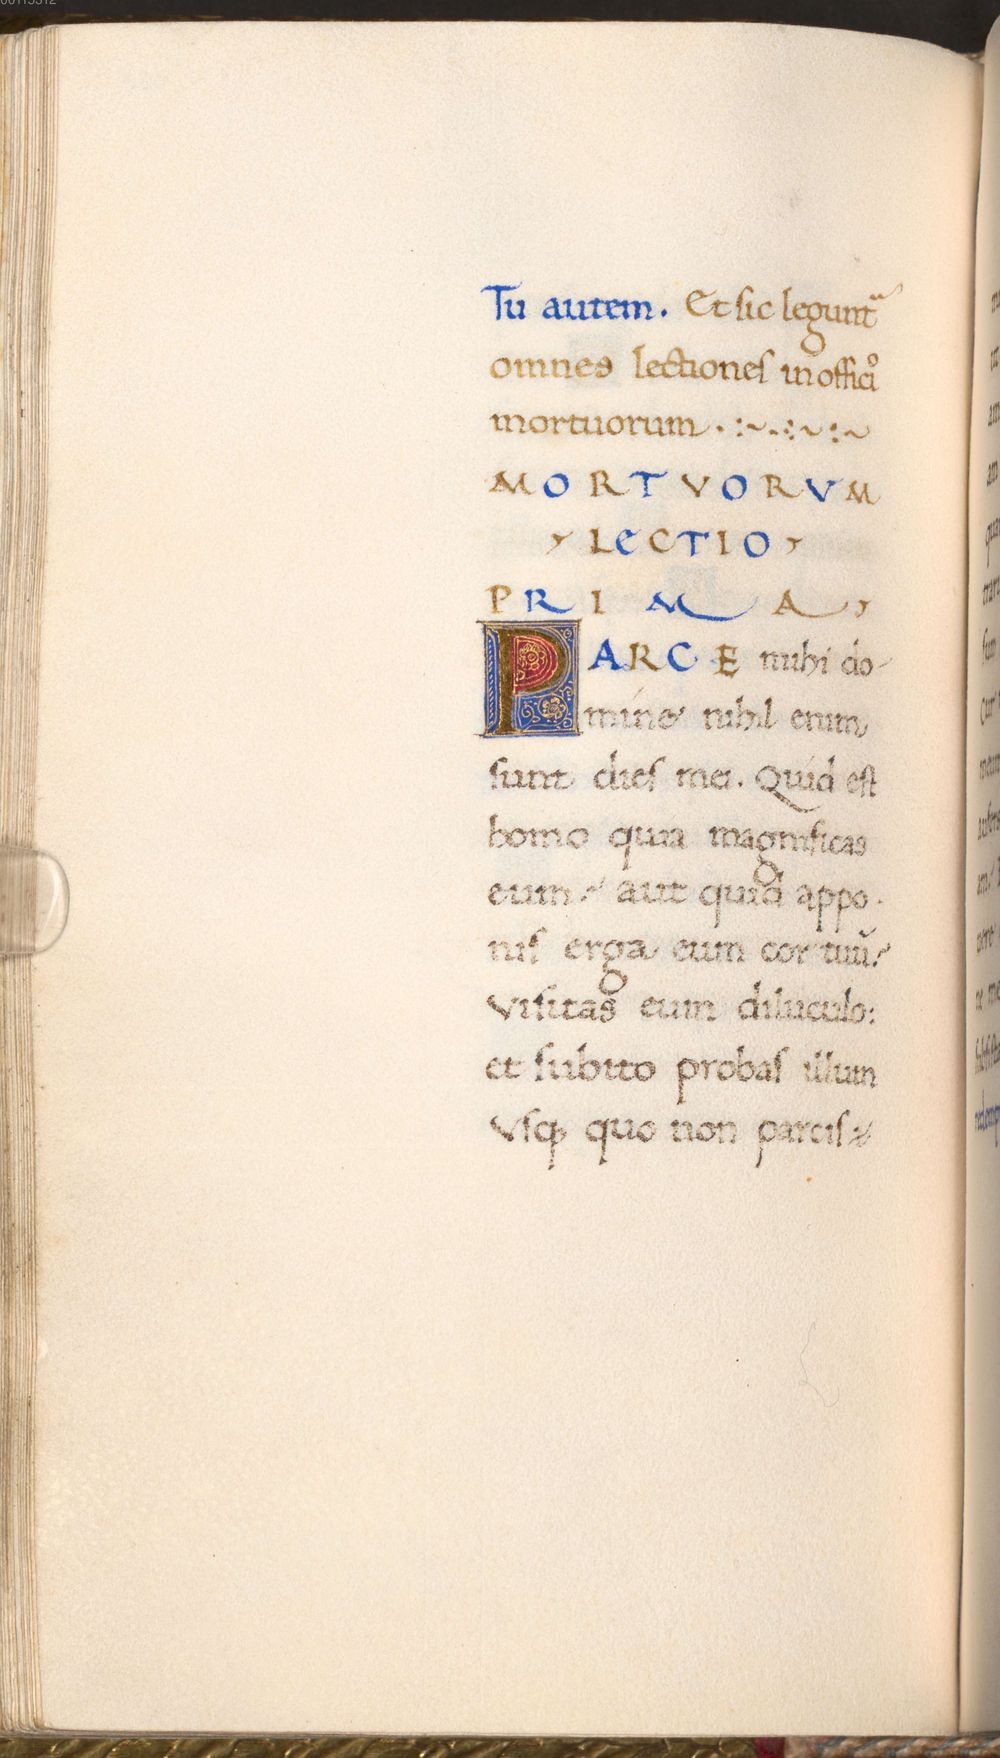 Tu autem. Et sic legunt᷑
omnes lectiones in offici͛o
mortuorum . :~.:~:~
MORTVORVM
LECTIO
PRIMA
PARCE mihi do-
mine nihil enim
sunt dies mei. Quid est
homo quia magnificas
eum? aut quid appo-
nis erga eum cor tuũ?
Visitas eum diluculo:
et subito probas illum
Vsqꝫ quo non parcis